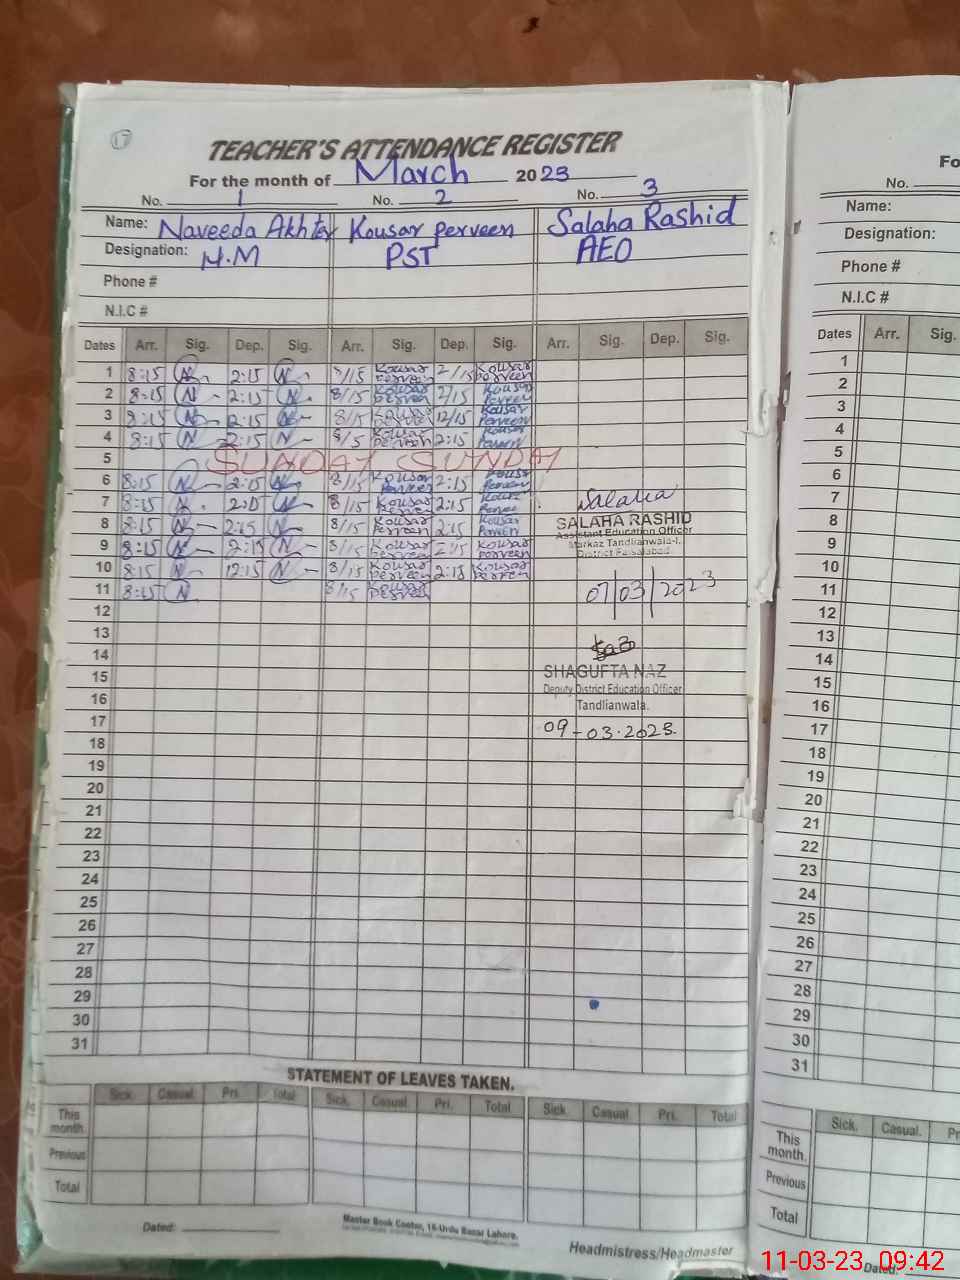 17
TEACHER'S ATTENDANCE REGISTER
For the month of March 2023
No. 1 No. 2 No. 3
Name: Naveeda Akhter Kousar perveen Salaha Rashid
Designation: H.M PST AEO
Phone #
N.I.C #
Dates Arr. Sig. Dep. Sig. Arr. Sig. Dep. Sig. Arr. Sig. Dep. Sig.
1 8:15 N 2:15 N 8/15 Kousar perveen 2/15 Kousar perveen
2 8:15 N 2:15 N 8/15 Kousar perveen 2/15 Kousar Perveen
3 8:15 N 2:15 N 8/15 Kousar perveen 12/15 Kousar Perveen
4 8:15 N 2:15 N Kousar perveen 2:15 Kousar Perveen
5 SUNDAY SUNDAY
6 8:15 N 2:15 N 8/15 Kousar Perveen 2:15 Kousar Perveen
7 8:15 N 8/15 Kousar Perveen 2:15
8 8:15 N 2:15 N 8/15 Kousar Perveen 2:15 Kousar Perveen
9 8:15 N 2:15 N 8/15 Kousar perveen 2:15 Kousar perveen
10 8:15 N 12:15 N 8/15 Kousar perveen 2:15 Kousar perveen
11 8:15 N 8/15 Kousar perveen
12
13
14
15
16
17
18
19
20
21
22
23
24
25
26
27
28
29
30
31
Salaha
SALAHA RASHID
Assistant Education Officer
Markaz Tandlianwala-I.
District Faisalabad
07/03/2023
SHAGUFTA NAZ
Deputy District Education Officer
Tandlianwala.
09-03-2023.
STATEMENT OF LEAVES TAKEN.
Sick. Casual. Pri. Total Sick. Casual. Pri. Total Sick. Casual. Pri. Total
This month.
Previous
Total
Dated:
Master Book Center, 16-Urdu Bazar Lahore.
Headmistress/Headmaster
Fo
No.
Name:
Designation:
Phone #
N.I.C #
Dates Arr. Sig.
1
2
3
4
5
6
7
8
9
10
11
12
13
14
15
16
17
18
19
20
21
22
23
24
25
26
27
28
29
30
31
Sick. Casual. Pr
This month.
Previous
Total
Dated:
11-03-23 09:42